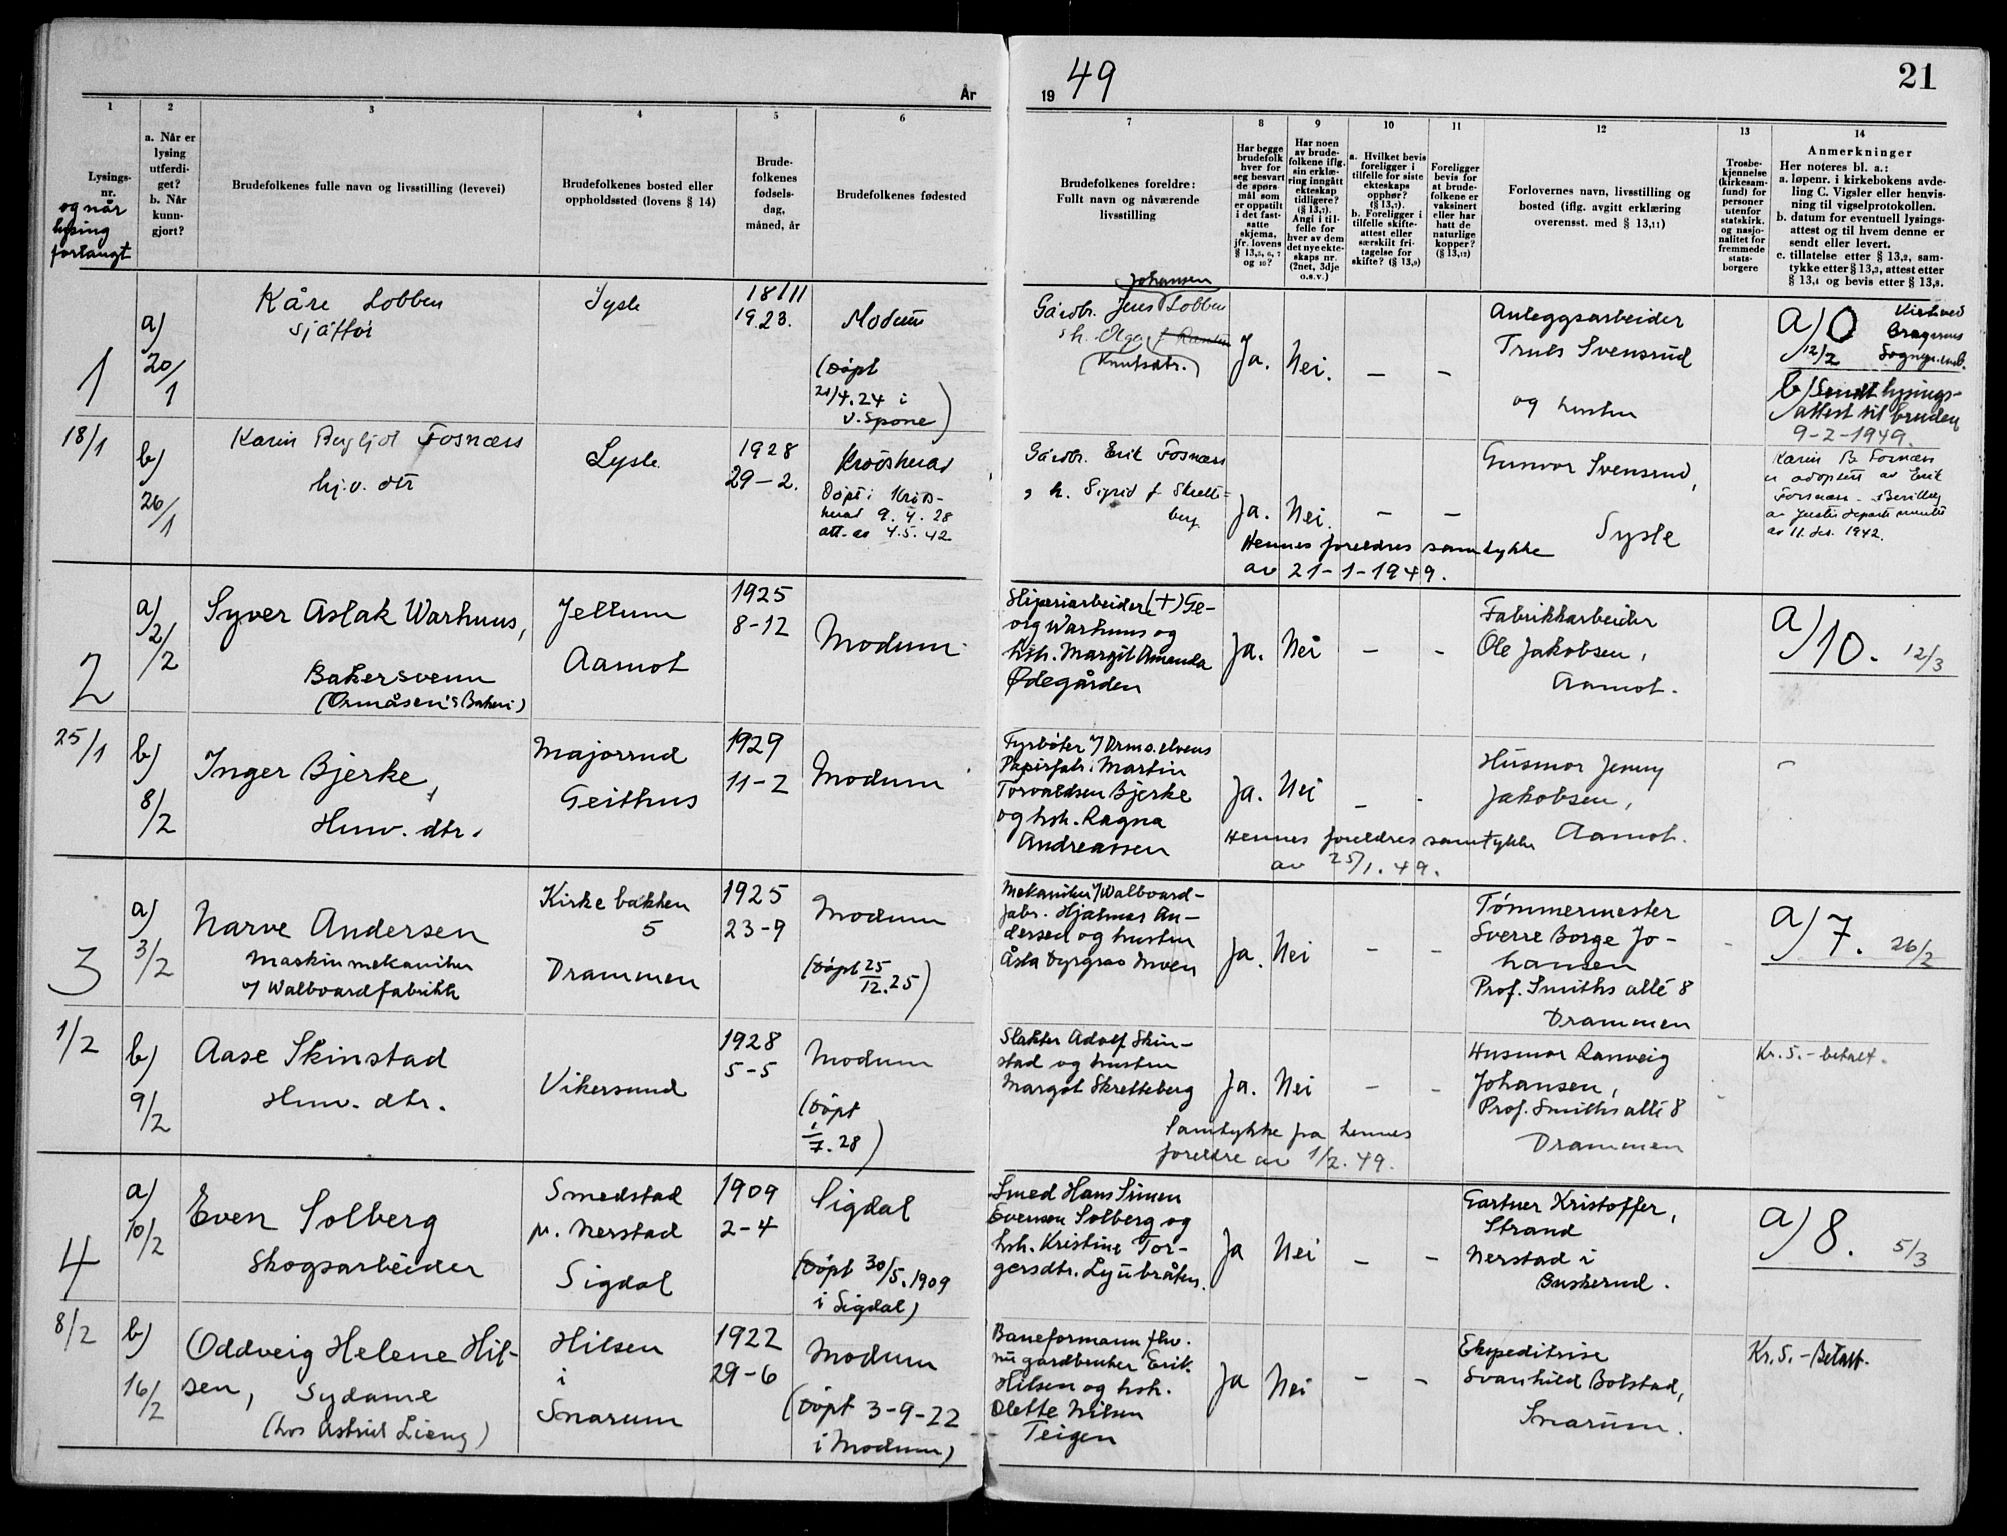 År
19 49
21
1
2
3
4
5
6
7
8
9
10
11
12
13
14
Lysings-
nr.
og når
lysing
forlangt
a. Når er
lysing
utferdi-
get?
b. Når
kunn-
gjort?
Brudefolkenes fulle navn og livsstilling (levevei)
Brudefolkenes bosted eller
oppholdssted (lovens § 14)
Brude-
folkenes
fødsels-
dag,
måned, år
Brudefolkenes fødested
Brudefolkenes foreldre:
Fullt navn og nåværende
livsstilling
Har begge
brudefolk
hver for
seg besvart
de spørs-
mål som
er oppstilt
i det fast-
satte
skjema,
jfr. lovens
§ 13,5, 6, 7
og 10?
Har noen
av brude-
folkene iflg.
sin erklæ-
ring inngått
ekteskap
tidligere?
(§ 13,7).
Angi i til-
felle for
hver av dem
det nye ekte-
skaps nr.
(2net, 3dje
o.s.v.)
a. Hvilket bevis
foreligger i
tilfelle for siste
ekteskaps
opphør?
(§ 13,7).
b. Foreligger i
tilfelle skifte-
attest eller
særskilt fri-
tagelse for
skifte? (§ 13,9)
Foreligger
bevis for
at brude-
folkene er
vaksinert
eller har
hatt de
naturlige
kopper?
(§ 13,12)
Forlovernes navn, livsstilling og
bosted (iflg. avgitt erklæring
overensst. med § 13,11)
Trosbe-
kjennelse
(kirkesam-
fund) for
personer
utenfor
statskirk.
og nasjo-
nalitet for
fremmede
stats-
borgere
Anmerkninger
Her noteres bl. a.:
a. løpenr. i kirkebokens avde-
ling C. Vigsler eller henvis-
ning til vigselprotokollen.
b. datum for eventuell lysings-
attest og til hvem denne er
sendt eller levert.
c. tillatelse etter § 13,2, sam-
tykke etter § 13,3, attest etter
§ 13,4 og bevis etter § 13,8.
1
18/1
a)
20/1
Kåre Lobben
sjåffør
Sysle
18/11
1923.
Modum
(Døpt
21/4.24 i
V. Spone)
Johansen
Gårdbr. Jens Lobben
h. Olga
(Knutsdtr.)
Ja.
Nei.
–
–
Anleggsarbeider
Truls Svensrud
og hustru
a) 0
12/2
Viet ved
Bragernes
b) Sendt lysings-
attest til bruden
9-2-1949.
b)
26/1
Karin Bergljot Fosnæss
hj.v. dtr
Sysle
1928
29-2.
Krødsherad
Døpt i Krøds-
herad 9.4.28
att. av 4.5.42
Gårdbr. Erik Fosnæss
h. Sigrid f. Skrette-
berg
Ja.
Nei.
–
–
Hennes foreldres samtykke
av 21-1-1949.
Gunvor Svensrud,
Sysle
Karin B. Fosnæss
er adoptert av Erik
Fosnæss. Bevilling
av Justis departementet
av 11. des. 1942.
2
25/1
a)
2/2
Syver Aslak Warhuus,
Bakersvenn
(Ormåsen's Bakeri)
Jellum
Aamot
1925
8-12
Modum
Sliperiarbeider (+) Ge-
org Warhuus og
hsh. Margit Amanda
Ødegården
Ja.
Nei
–
-
Fabrikkarbeider
Ole Jakobsen,
Aamot.
a) 10. 12/3
b)
8/2
Inger Bjerke,
Huv. dtr.
Majorrud
Geithus
1929
11-2
Modum
Fyrbøter v/ Drms.elvens
Papirfabr. Martin
Torvaldsen Bjerke
og hsh. Ragna
Andreassen
Ja.
Nei
–
-
Hennes foreldres samtykke
av 25/1.49.
Husmor Jenny
Jakobsen,
Aamot.
3
1/2
a)
3/2
Narve Andersen
Maskinmekaniker
v/ Walboardfabrikk
Kirkebakken
5
Drammen
1925
23-9
Modum
(Døpt 25/12.25)
Mekaniker v/ Walboard-
fabr. Hjalmar An-
dersen og hustru
Åsta Dyrgras Moen
Ja.
Nei
–
–
Tømmermester
Sverre Borge Jo-
hansen
Prof. Smiths allé 8
Drammen
a) 7. 26/2
b)
9/2
Aase Skinstad
Huv. dtr.
Vikersund
1928
5-5
Modum
(Døpt
1/7.28)
Slakter Adolf Skin-
stad og hustru
Margot Skretteberg
Ja.
Nei
–
–
Samtykke fra hennes
foreldre av 1/2.49.
Husmor Ranveig
Johansen,
Prof. Smiths allé 8
Drammen
Kr. 5.- betalt.
4
8/2
a)
10/2
Even Solberg
Skogsarbeider
Smedstad
pr. Nerstad
Sigdal
1909
2-4
Sigdal
(Døpt 30/5.1909
i Sigdal)
Smed Hans Simen
Evensen Solberg og
hsh. Kristine Tor-
gersdtr. Ljøbråten.
Ja
Nei
–
–
Gartner Kristoffer,
Strand
Nerstad i
Buskerud.
a) 8. 5/3
b)
16/2
Oddveig Helene Hil-
sen, Sydame
(hos Astrid Lieng)
Hilsen
i
Snarum
1922
29-6
Modum
(Døpt 3-9-22
i Modum)
Baneformann fhv.
nu gardbruker Erik
Hilsen og hsh.
Olette Nilsen
Teigen
Ja
Nei
–
–
Ekspeditrise
Svanhild Bolstad,
Snarum.
Kr. 5.- Betalt.